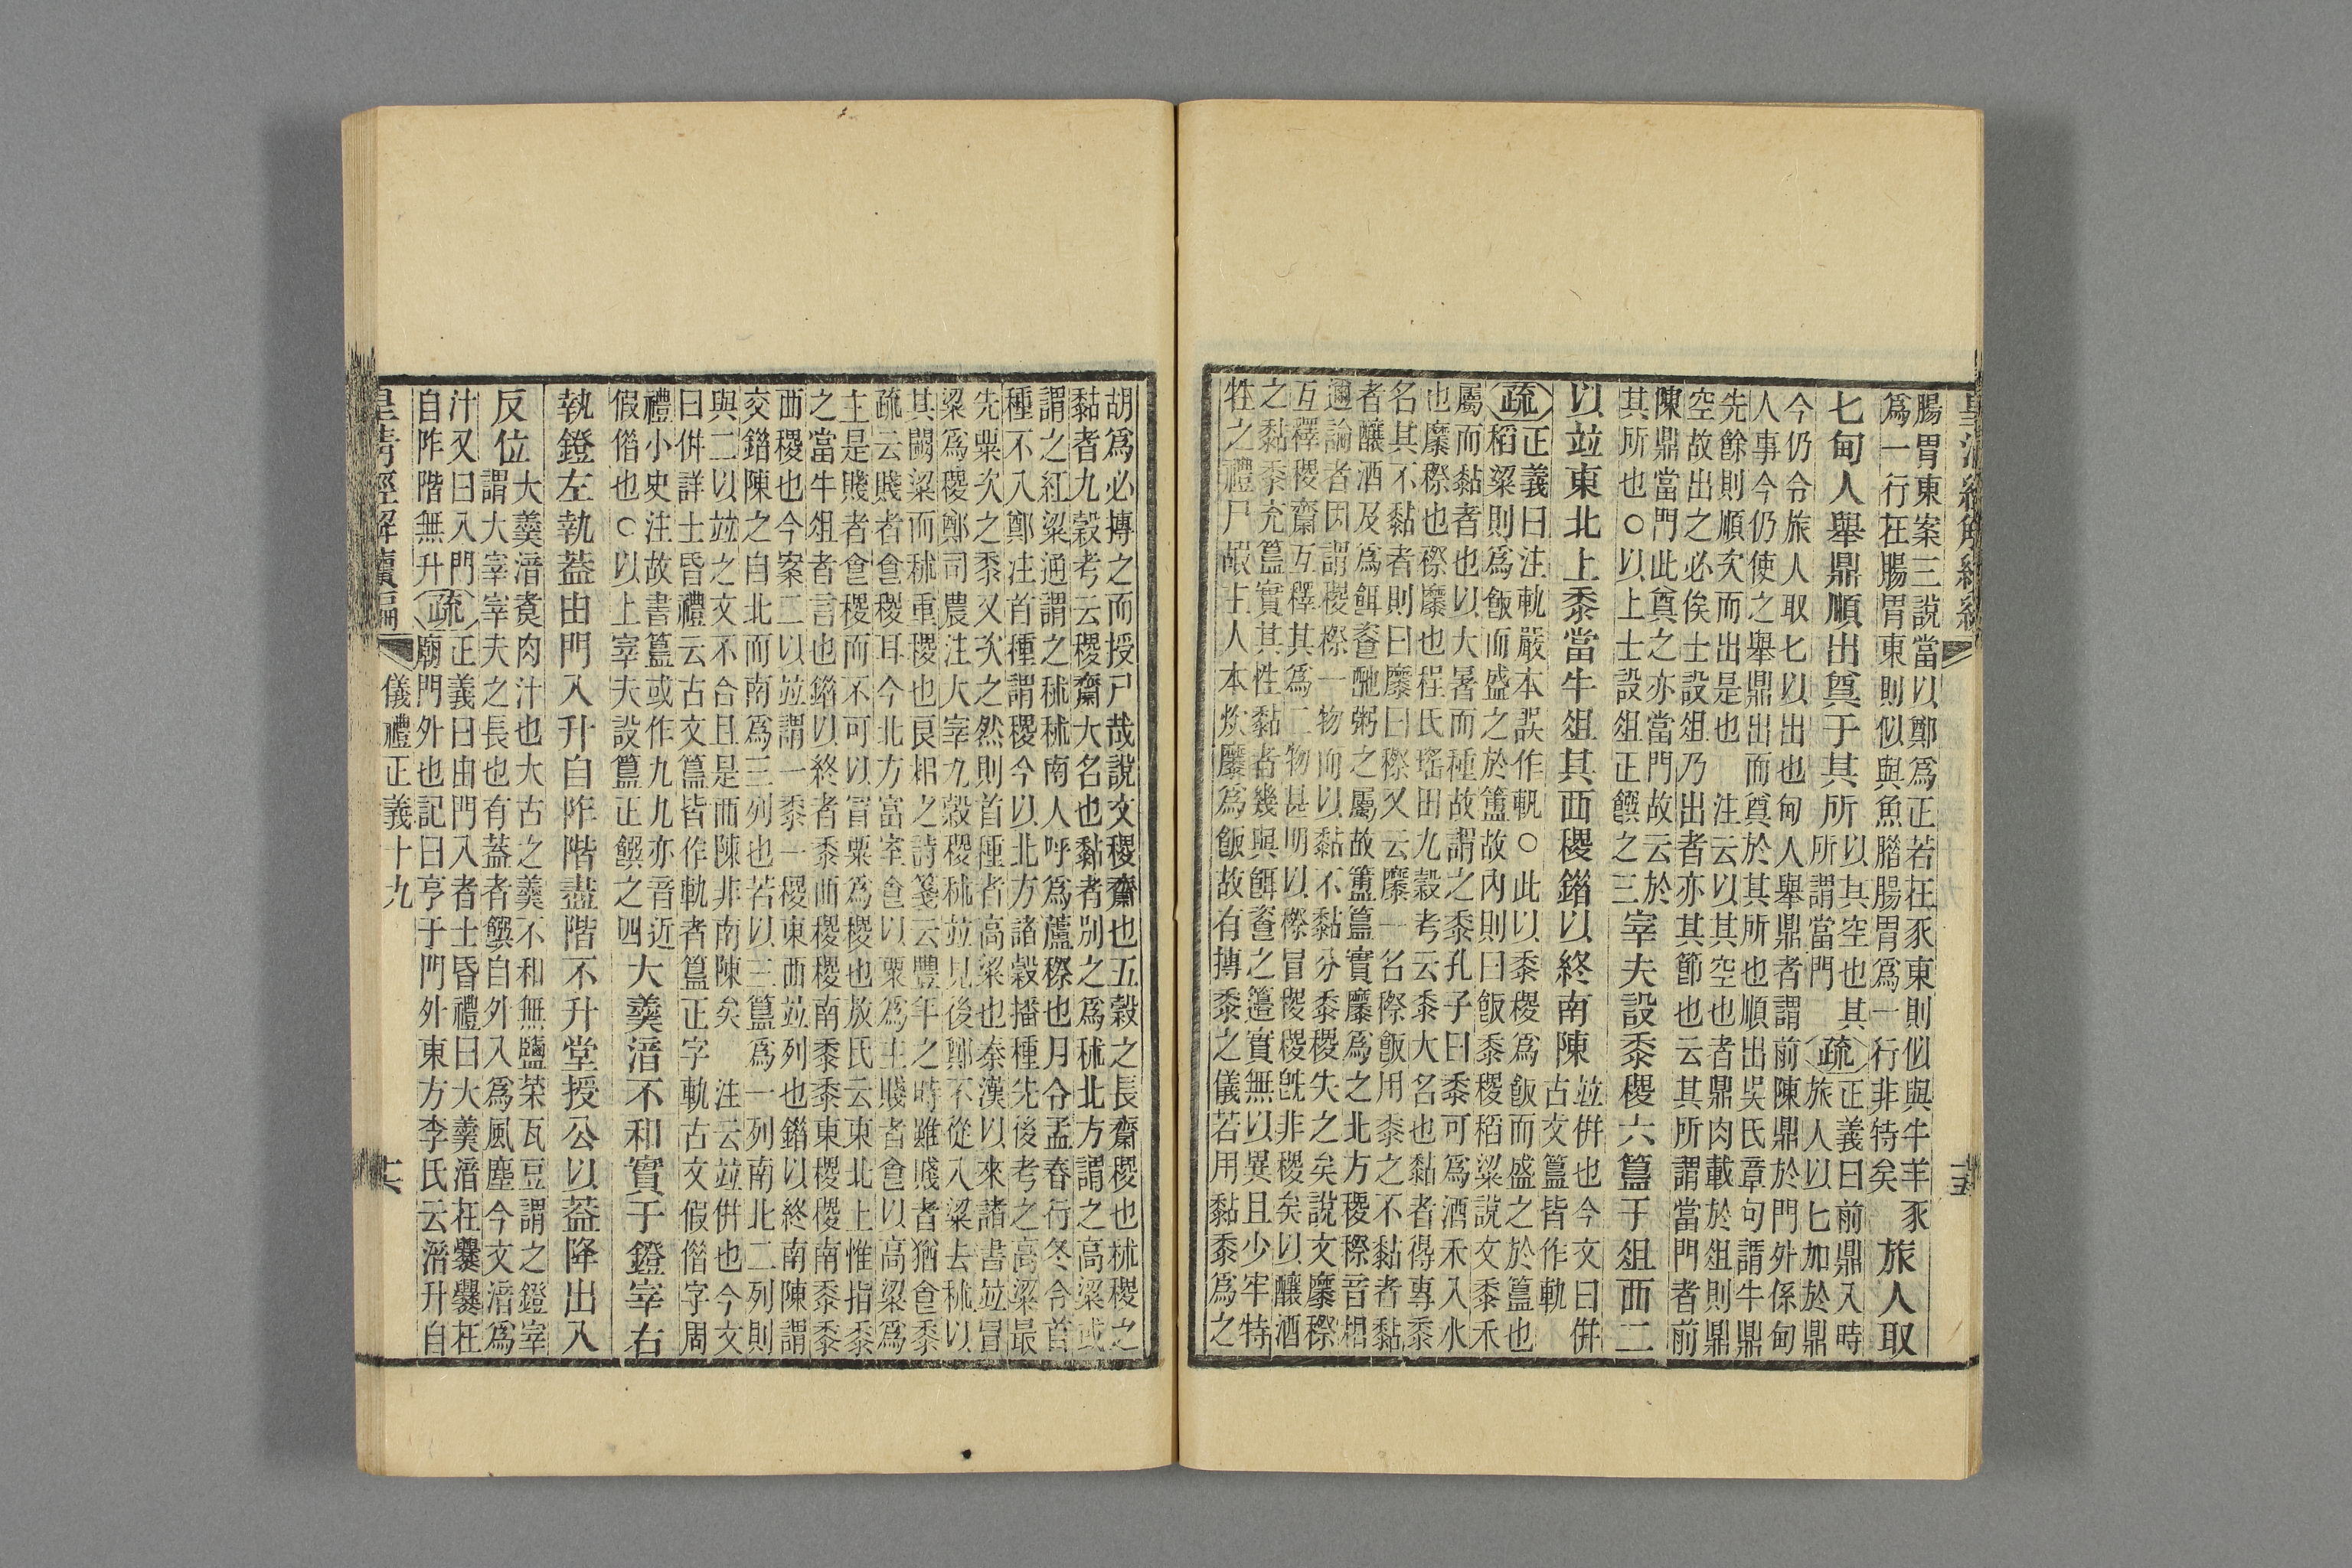 皇清經解續編
腸胃東案三說當以鄭為正若在豕東則似與牛羊豕
為一行在腸胃東則似與魚腊腸胃為一行非特矣
旅人取
匕甸人舉鼎順出奠于其所
以其空也其
所謂當門
疏
正義曰前鼎入時
旅人以匕加於鼎
今仍令旅人取匕以出也甸人舉鼎者謂前陳鼎於門外係甸
人事今仍使之舉鼎出而奠於其所也順出吳氏章句謂牛鼎
先餘則順次而出是也 注云以其空也者鼎肉載於俎則鼎
空故出之必俟士設俎乃出者亦其節也云其所謂當門者前
陳鼎當門此奠之亦當門故云於
其所也○以上士設俎正饌之三
宰夫設黍稷六簋于俎西二
以竝東北上黍當牛俎其西稷錯以終南陳
竝倂也今文曰倂
古文簋皆作軌
疏
正義曰注軌嚴本誤作軓○此以黍稷為飯而盛之於簋也
稻粱則為飯而盛之於簠故內則曰飯黍稷稻粱說文黍禾
屬而黏者也以大暑而種故謂之黍孔子曰黍可為酒禾入水
也穈穄也穄穈也程氏瑤田九穀考云黍大名也黏者得專黍
名其不黏者則曰穈曰穄又云穈一名穄飯用黍之不黏者黏
者釀酒及為餌餈酏粥之屬故簠簋實穈為之北方稷穄音相
邇論者因謂稷穄一物而以黏不黏分黍稷失之矣說文穈穄
互釋稷齋互釋其為二物甚明以穄冒稷稷旣非稷矣以釀酒
之黏黍充簋實其性黏者幾與餌餈之籩實無以異且少牢特
牲之禮尸嘏主人本炊穈為飯故有摶黍之儀若用黏黍為之
十五
胡為必摶之而授尸哉說文稷齋也五穀之長齋稷也秫稷之
黏者九穀考云稷齋大名也黏者別之為秫北方謂之高粱或
謂之紅粱通謂之秫秫南人呼為蘆穄也月令孟春行冬令首
種不入鄭注首種謂稷今以北方諸穀播種先後考之高粱最
先粟次之黍又次之然則首種者高粱也秦漢以來諸書竝冒
粱為稷鄭司農注大宰九穀稷秫竝見後鄭不從入粱去秫以
其闕粱而秫重稷也良耜之詩箋云豐年之時雖賤者猶食黍
疏云賤者食稷耳今北方富室食以粟為主賤者食以高粱為
主是賤者食稷而不可以冒粟為稷也敖氏云東北上惟指黍
之當牛俎者言也錯以終者黍西稷稷南黍黍東稷稷南黍黍
西稷也今案二以竝謂一黍一稷東西竝列也錯以終南陳謂
交錯陳之自北而南為三列也若以三簋為一列南北二列則
與二以竝之文不合且是西陳非南陳矣 注云竝倂也今文
曰倂詳士昏禮云古文簋皆作軌者簋正字軌古文假借字周
禮小史注故書簋或作九九亦音近
假借也○以上宰夫設簋正饌之四
大羹湆不和實于鐙宰右
執鐙左執蓋由門入升自阼階盡階不升堂授公以蓋降出入
反位
大羹湆煑肉汁也大古之羹不和無鹽菜瓦豆謂之鐙宰
謂大宰宰夫之長也有蓋者饌自外入為風塵今文湆為
汁又曰入門
自阼階無升
疏
正義曰由門入者士昏禮曰大羹湆在爨爨在
廟門外也記曰亨于門外東方李氏云湆升自
皇清經解續編
儀禮正義十九
十六